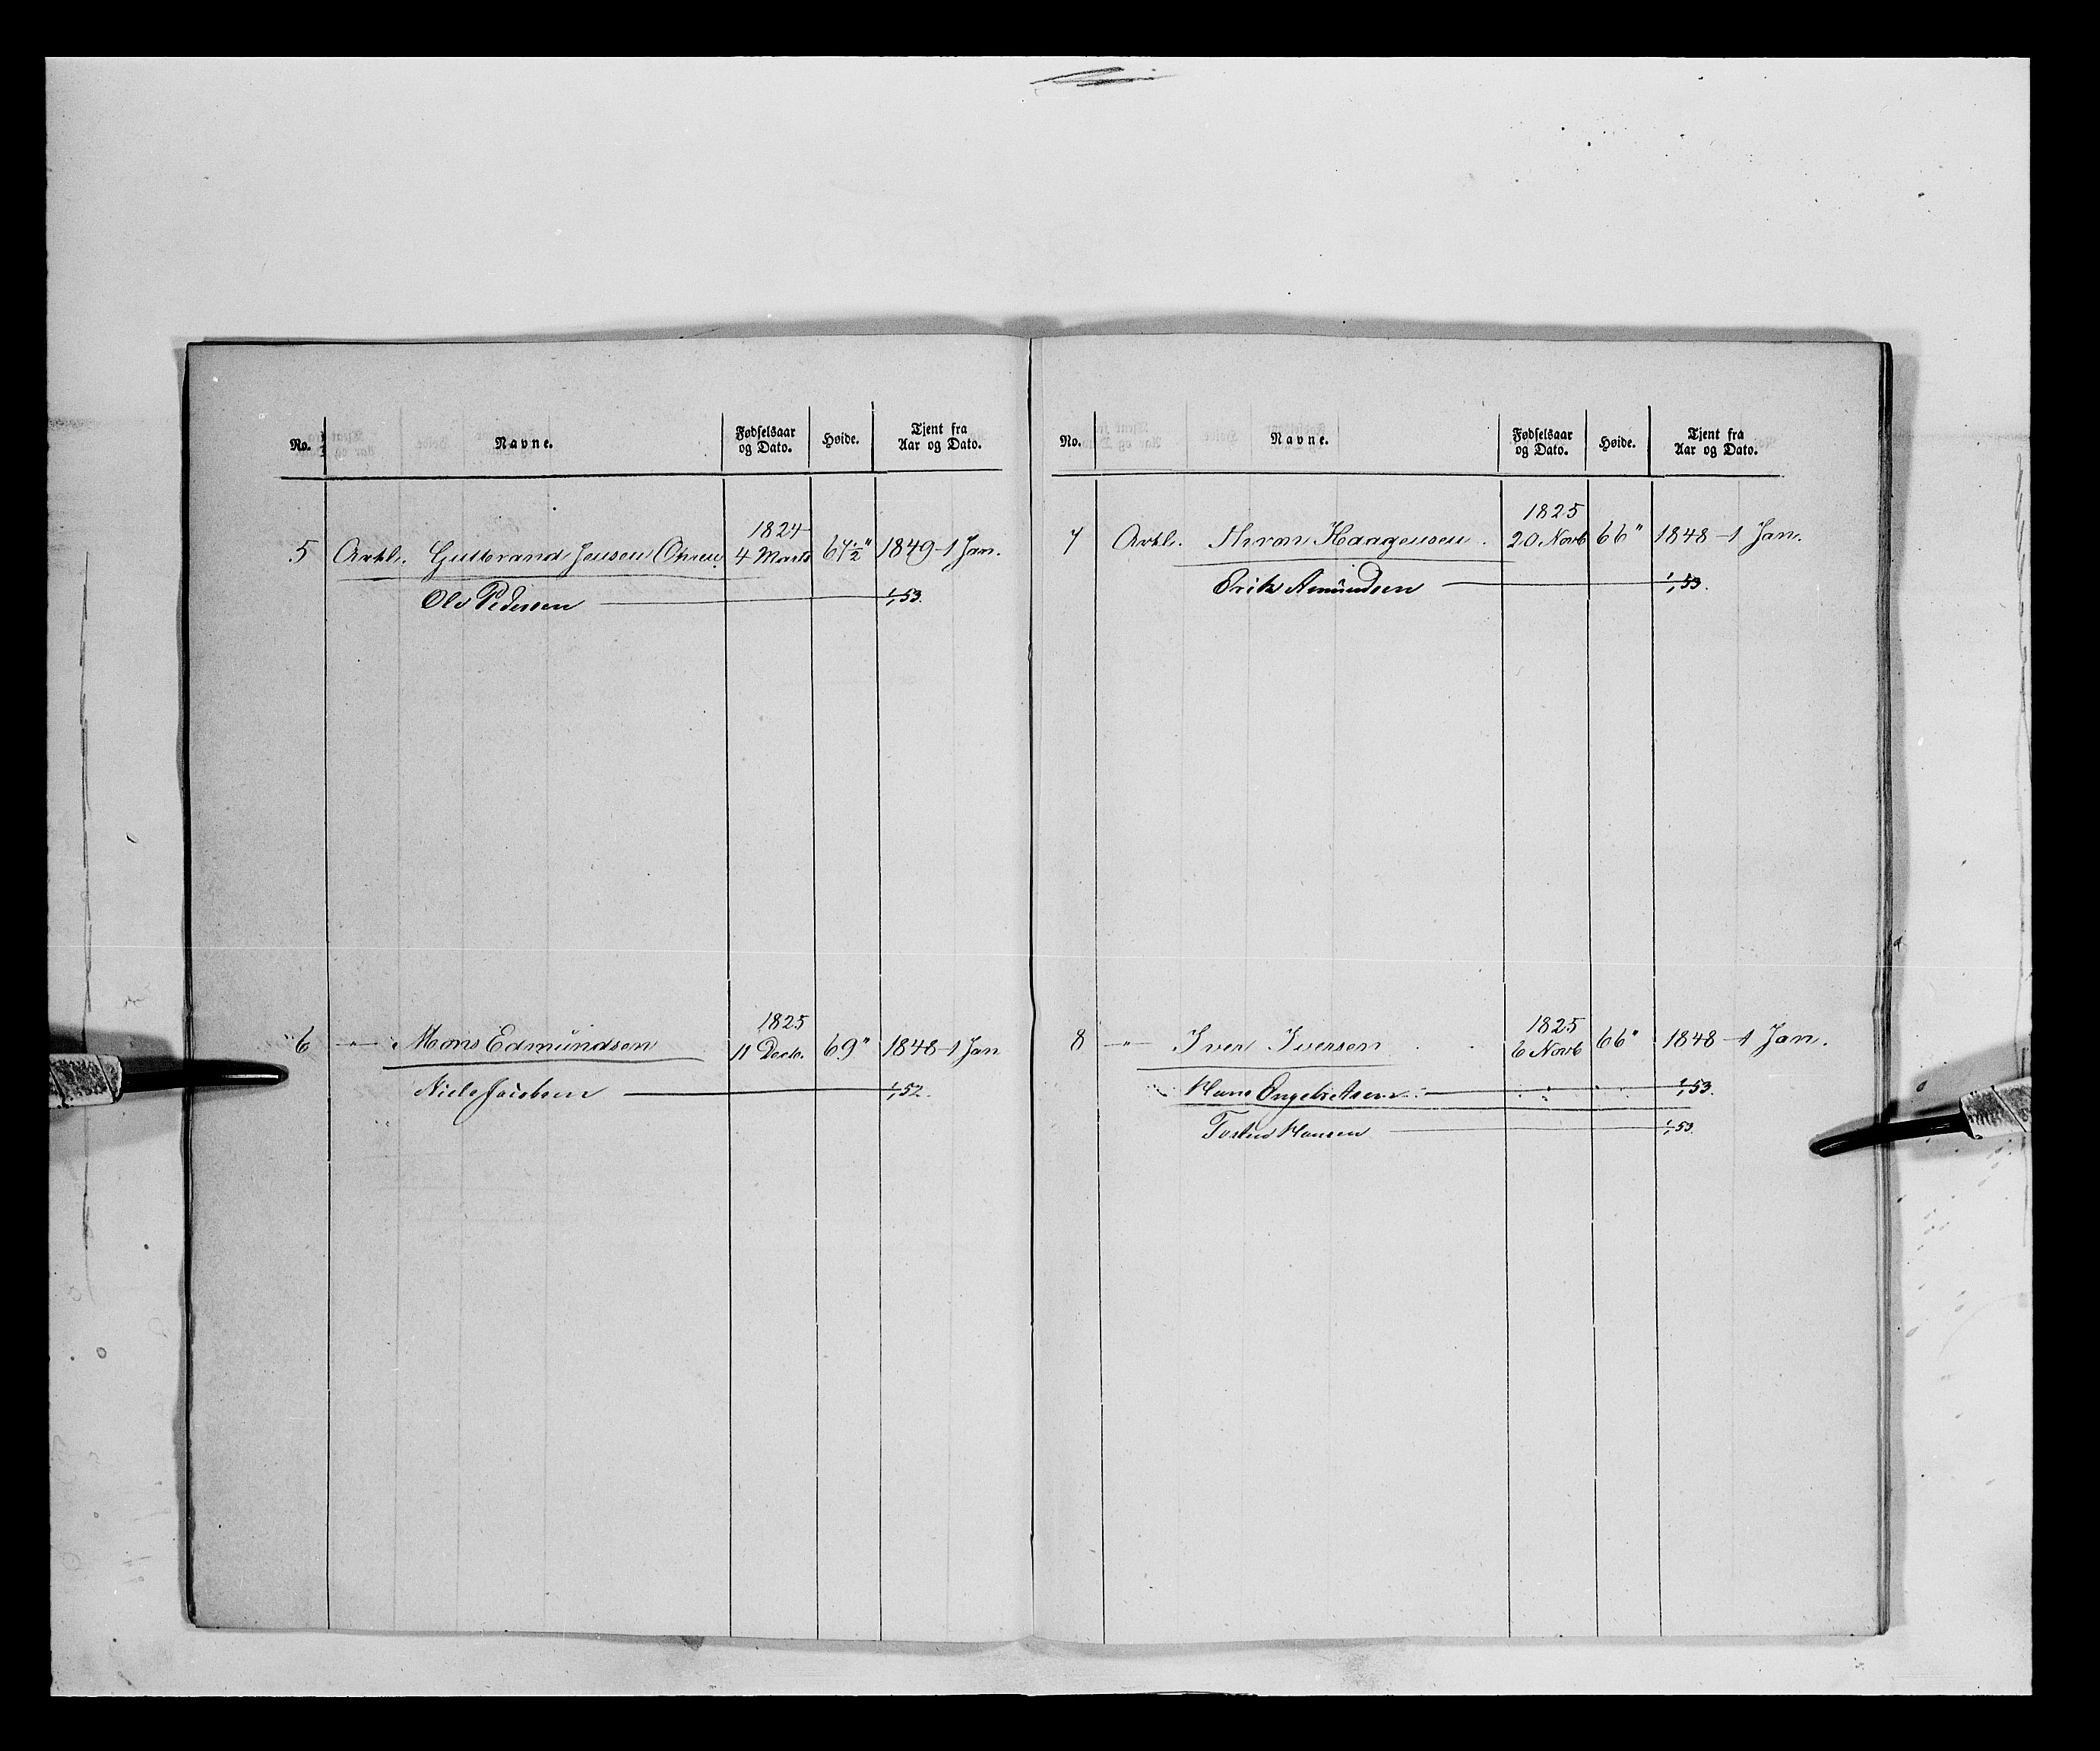 No. Navne. Fødselsaar og Dato. Høide. Tjent fra Aar og Dato.
1824
5 Artkl. Gulbrand Jensen 4 Marts 67½" 1849 - 1 Jan.
Ole Pedersen 1/1 53.
1825
6 —"— Mons Edmundsen 11 Decb. 69" 1848 - 1 Jan
Niels Jacobsen 1/1 52.
No. Navne. Fødselsaar og Dato. Høide. Tjent fra Aar og Dato.
1825
7 Artkl. Haagensen. 20 Novb 66" 1848 - 1 Jan.
Erik Amundsen 1/1 53.
1825
8 —"— Iver Iversen 6 Novb 66" 1848 - 1 Jan.
Hans Engebretsen 1/1 53.
Hansen 1/1 53.